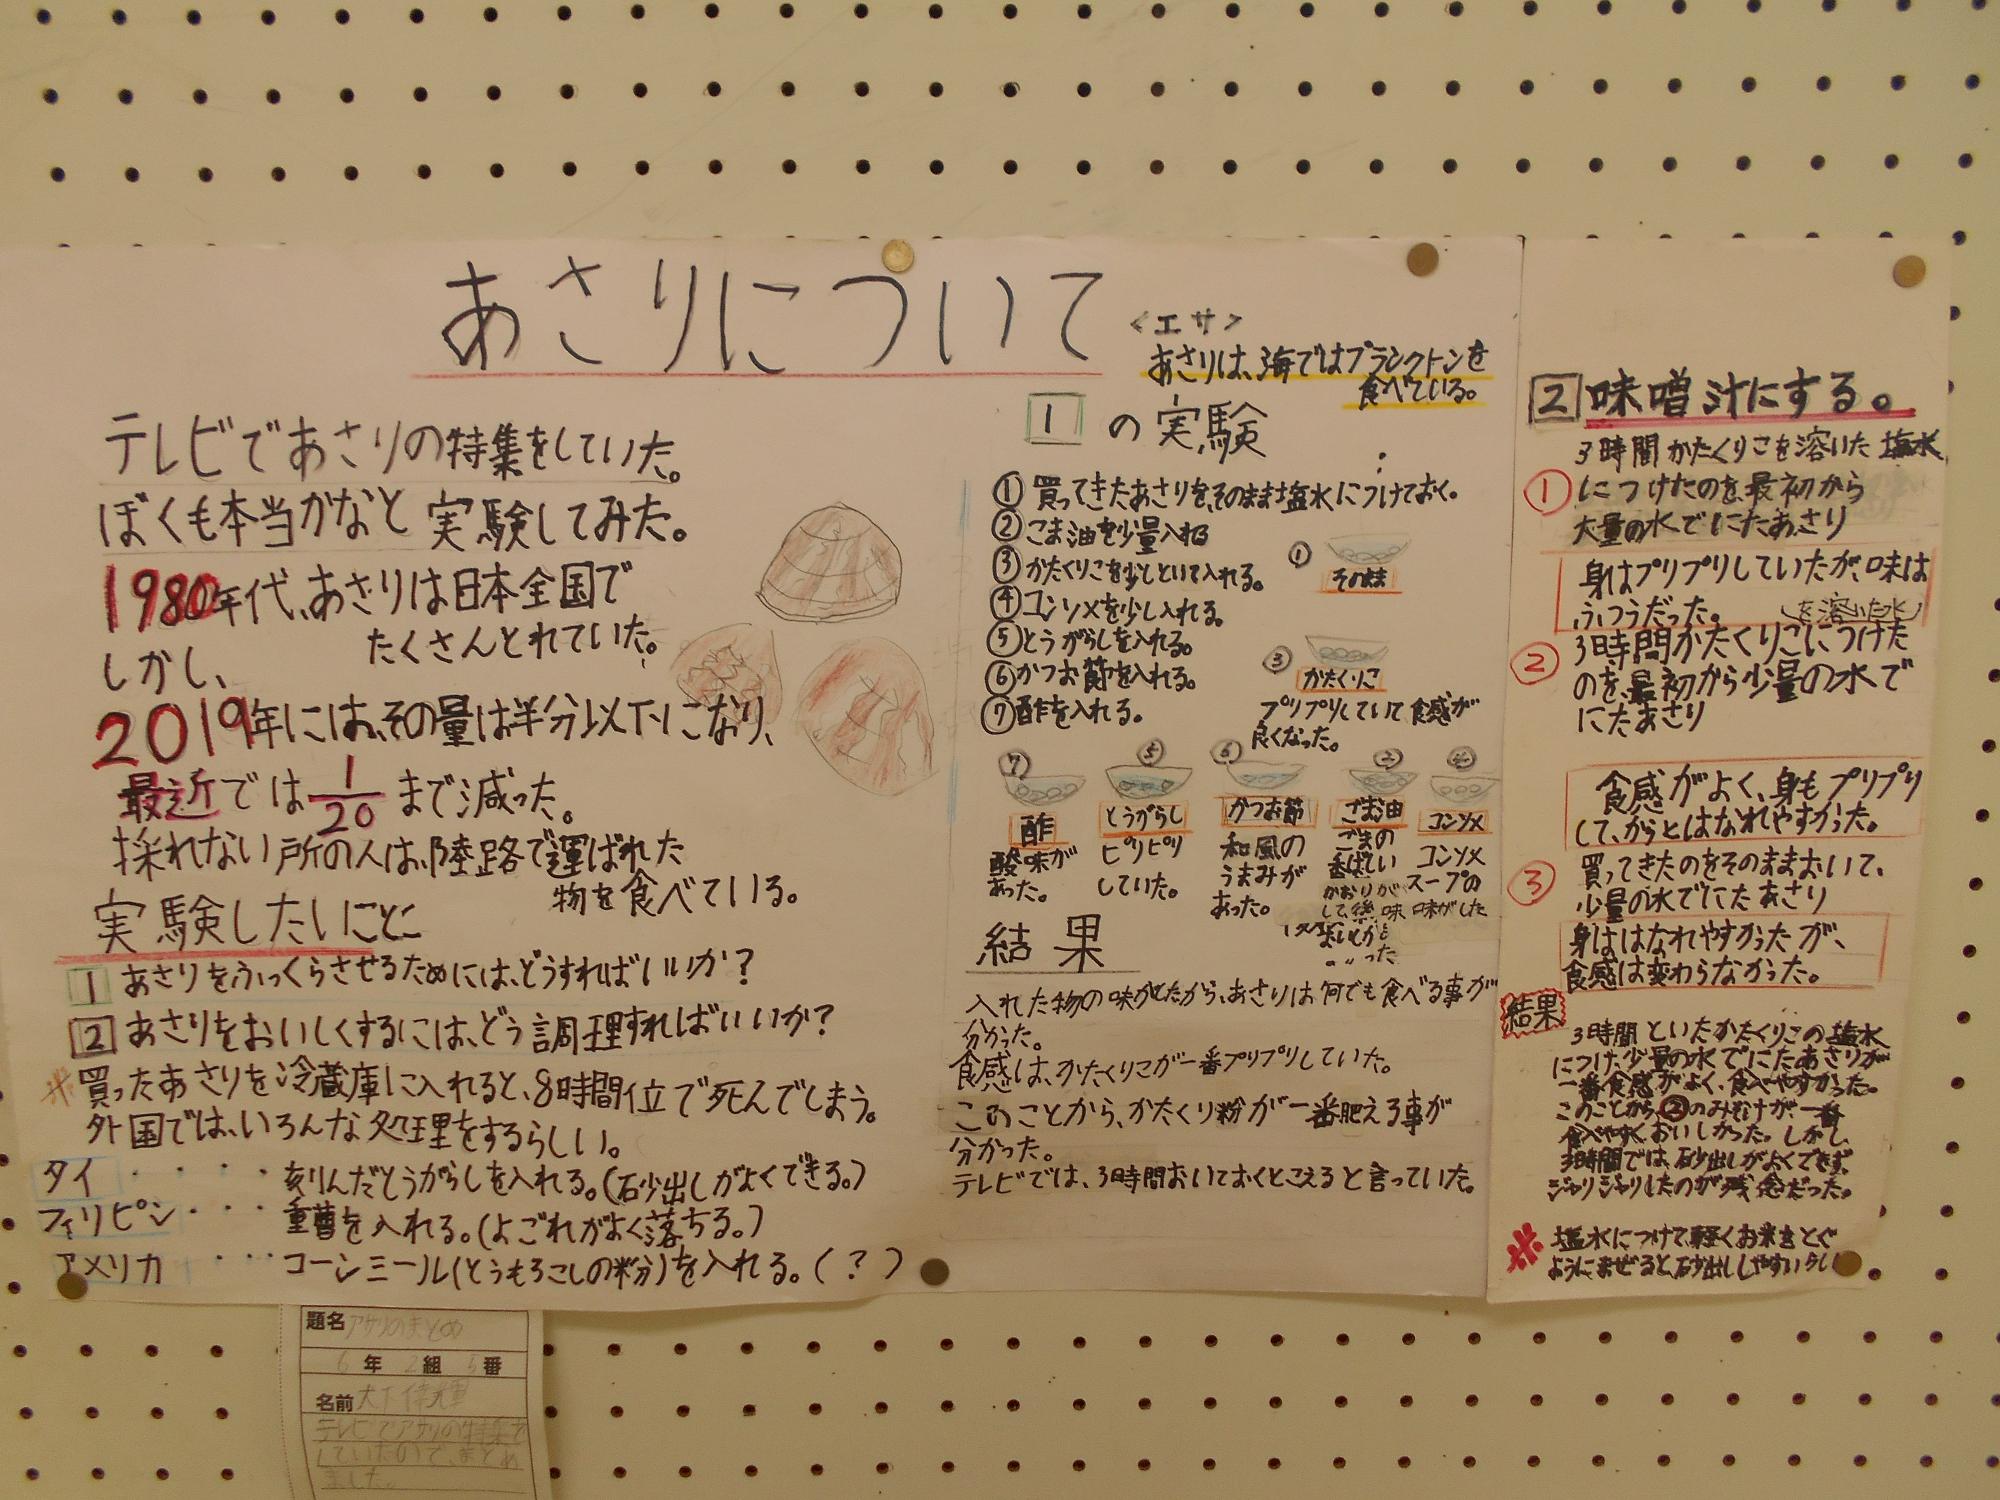 あさりについて
テレビであさりの特集をしていた。
ぼくも本当かなと実験してみた。
1980年代、あさりは日本全国で
たくさんとれていた。
しかし、
2019年には、その量は半分以下になり、
最近では1/20まで減った。
採れない所の人は、陸路で運ばれた
物を食べている。
実験したいこと
1 あさりをふっくらさせるためには、どうすればいいか?
2 あさりをおいしくするには、どう調理すればいいか?
※買ったあさりを冷蔵庫に入れると、8時間位で死んでしまう。
外国では、いろんな処理をするらしい。
タイ・・・・刻んだとうがらしを入れる。(砂出しがよくできる。)
フィリピン・・・重曹を入れる。(よごれがよく落ちる。)
アメリカ・・・コーンミール(とうもろこしの粉)を入れる。(?)
<エサ>
あさりは、海ではプランクトンを
食べている。
1の実験
①買ってきたあさりを、そのまま塩水につけておく。
②ごま油を少量入れる
③かたくりこを少しといて入れる。
④コンソメを少し入れる。
⑤とうがらしを入れる。
⑥かつお節を入れる。
⑦酢を入れる。
①
そのまま
③
かたくりこ
プリプリしていて食感が
良くなった。
⑦
酢
酸味が
あった。
⑤
とうがらし
ピリピリ
していた。
⑥
かつお節
和風の
うまみが
あった。
②
ごま油
ごまの
香ばしい
かおりが
④
コンソメ
コンソメ
スープの
味がした
結果
入れた物の味がしたから、あさりは何でも食べる事が
分かった。
食感は、かたくりこが一番プリプリしていた。
このことから、かたくり粉が一番肥える事が
分かった。
テレビでは、3時間おいておくとこえると言っていた。
2 味噌汁にする。
3時間かたくりこを溶いた塩水
①につけたのを最初から
大量の水でにたあさり
身はプリプリしていたが、味は
ふつうだった。
を溶いた水
②3時間かたくりこにつけた
のを、最初から少量の水で
にたあさり
食感がよく、身もプリプリ
して、からとはなれやすかった。
③買ってきたのをそのままおいて、
少量の水でにたあさり
身ははなれやすかったが、
食感は変わらなかった。
結果
3時間といたかたくりこの塩水
につけ、少量の水でにたあさりが
一番食感がよく、食べやすかった。
このことから、②のみそ汁が、一番
食べやすく、おいしかった。しかし、
3時間では、砂出しがよくできず、
ジャリジャリしたのが残念だった。
※塩水につけて、軽くお米をとぐ
ようにまぜると、砂出ししやすいらしい
題名 アサリのまとめ
6年2組5番
名前 大下
テレビでアサリの特集を
していたので、まとめ
ました。